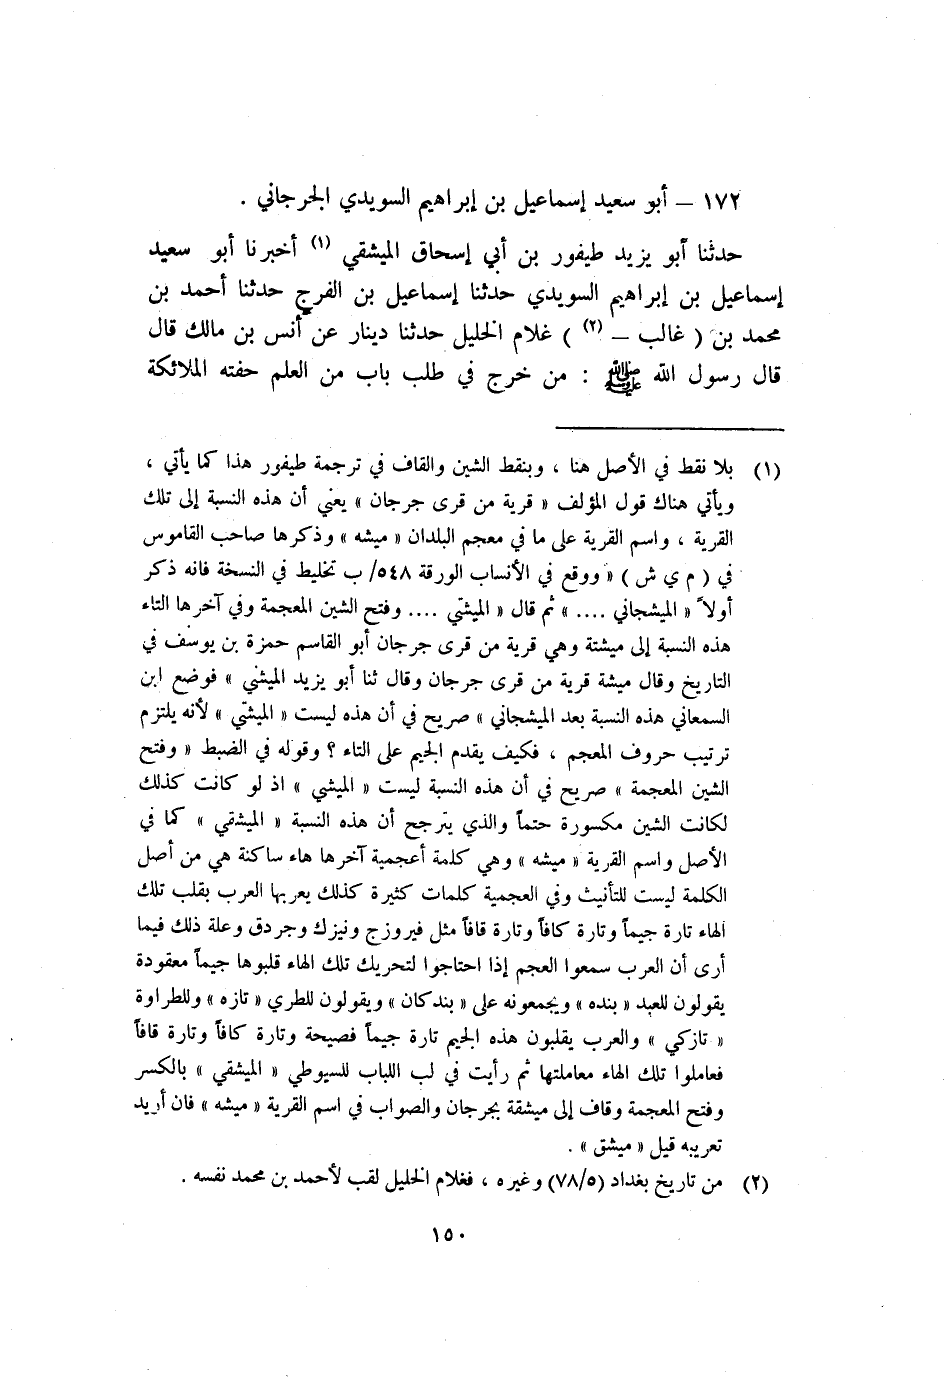 ١٧٢ – أبو سعيد إسماعيل بن إبراهيم السويدي الجرجاني .
حدثنا أبو يزيد طيفور بن أبي إسحاق الميشقي (١) أخبرنا أبو سعيد
إسماعيل بن إبراهيم السويدي حدثنا إسماعيل بن الفرج حدثنا أحمد بن
محمد بن ( غالب – (٢) ) غلام الخليل حدثنا دينار عن أنس بن مالك قال
قال رسول الله ﷺ : من خرج في طلب باب من العلم حفته الملائكة
(١) بلا نقط في الأصل هنا ، وبنقط الشين والقاف في ترجمة طيفور هذا كما يأتي ،
ويأتي هناك قول المؤلف « قرية من قرى جرجان » يعني أن هذه النسبة إلى تلك
القرية ، واسم القرية على ما في معجم البلدان « ميشه » وذكرها صاحب القاموس
في ( م ي ش ) « ووقع في الأنساب الورقة ٥٤٨/ب تخليط في النسخة فانه ذكر
أولاً « الميشجاني .... » ثم قال « الميشتي .... وفتح الشين المعجمة وفي آخرها التاء
هذه النسبة إلى ميشتة وهي قرية من قرى جرجان أبو القاسم حمزة بن يوسف في
التاريخ وقال ميشة قرية من قرى جرجان وقال ثنا أبو يزيد الميشي » فوضع ابن
السمعاني هذه النسبة بعد الميشجاني » صريح في أن هذه ليست « الميشتي » لأنه يلتزم
ترتيب حروف المعجم ، فكيف يقدم الجيم على التاء ؟ وقوله في الضبط « وفتح
الشين المعجمة » صريح في أن هذه النسبة ليست « الميشي » اذ لو كانت كذلك
لكانت الشين مكسورة حتماً والذي يترجح أن هذه النسبة « الميشقي » كما في
الأصل واسم القرية « ميشه » وهي كلمة أعجمية آخرها هاء ساكنة هي من أصل
الكلمة ليست للتأنيث وفي العجمية كلمات كثيرة كذلك يعربها العرب بقلب تلك
الهاء تارة جيماً وتارة كافاً وتارة قافاً مثل فيروزج ونيزك وجردق وعلة ذلك فيما
أرى أن العرب سمعوا العجم إذا احتاجوا لتحريك تلك الهاء قلبوها جيماً معقودة
يقولون للعبد « بنده » ويجمعونه على « بندكان » ويقولون للطري « تازه » وللطراوة
« تازكي » والعرب يقلبون هذه الجيم تارة جيماً فصيحة وتارة كافاً وتارة قافاً
فعاملوا تلك الهاء معاملتها ثم رأيت في لب اللباب للسيوطي « الميشقي » بالكسر
وفتح المعجمة وقاف إلى ميشقة بجرجان والصواب في اسم القرية « ميشه » فان أريد
تعريبه قيل « ميشق » .
(٢) من تاريخ بغداد (٧٨/٥) وغيره ، فغلام الخليل لقب لأحمد بن محمد نفسه .
١٥٠